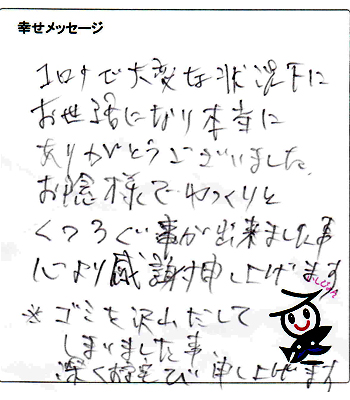 幸せメッセージ
コロナで大変な状況下に
お世話になり本当に
ありがとうございました。
お陰様でゆっくりと
くつろぐ事が出来ました事
心より感謝申し上げます
※ゴミを沢山だして
しまいました事、
深くお詫び申し上げます